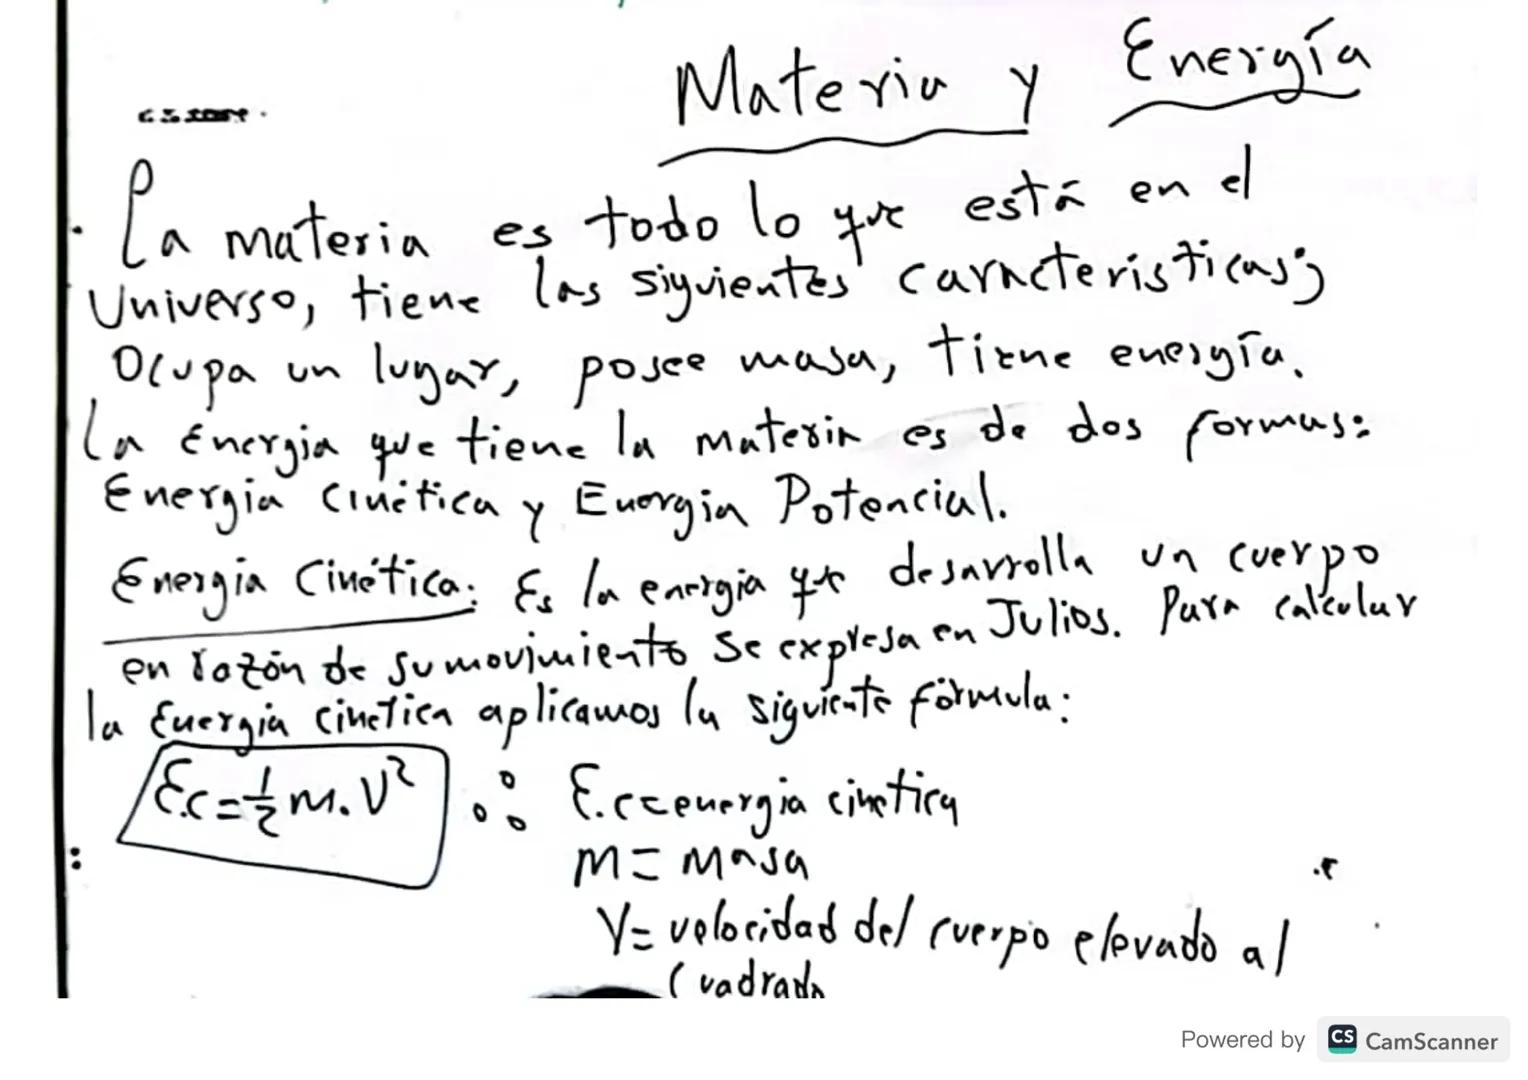 Materia y Energía
La materia es todo lo que está en el
Universo, tiene las siguientes características;
Ocupa un lugar, posee masa, tiene energía.
La Energia que tiene la materia es de dos formas:
Energia Cinética y Energia Potencial.
Energia Cinética: Es la energia que desarrolla un cuerpo
en razón de su movimiento se expresa en Julios. Para calcular
la Energia cinetica aplicamos la siguiente fórmula:
E.c = 1/2 m. V² ∴ E.c = energia cinetica
m = masa
V = velocidad del cuerpo elevado al
cuadrado
Powered by CS CamScanner